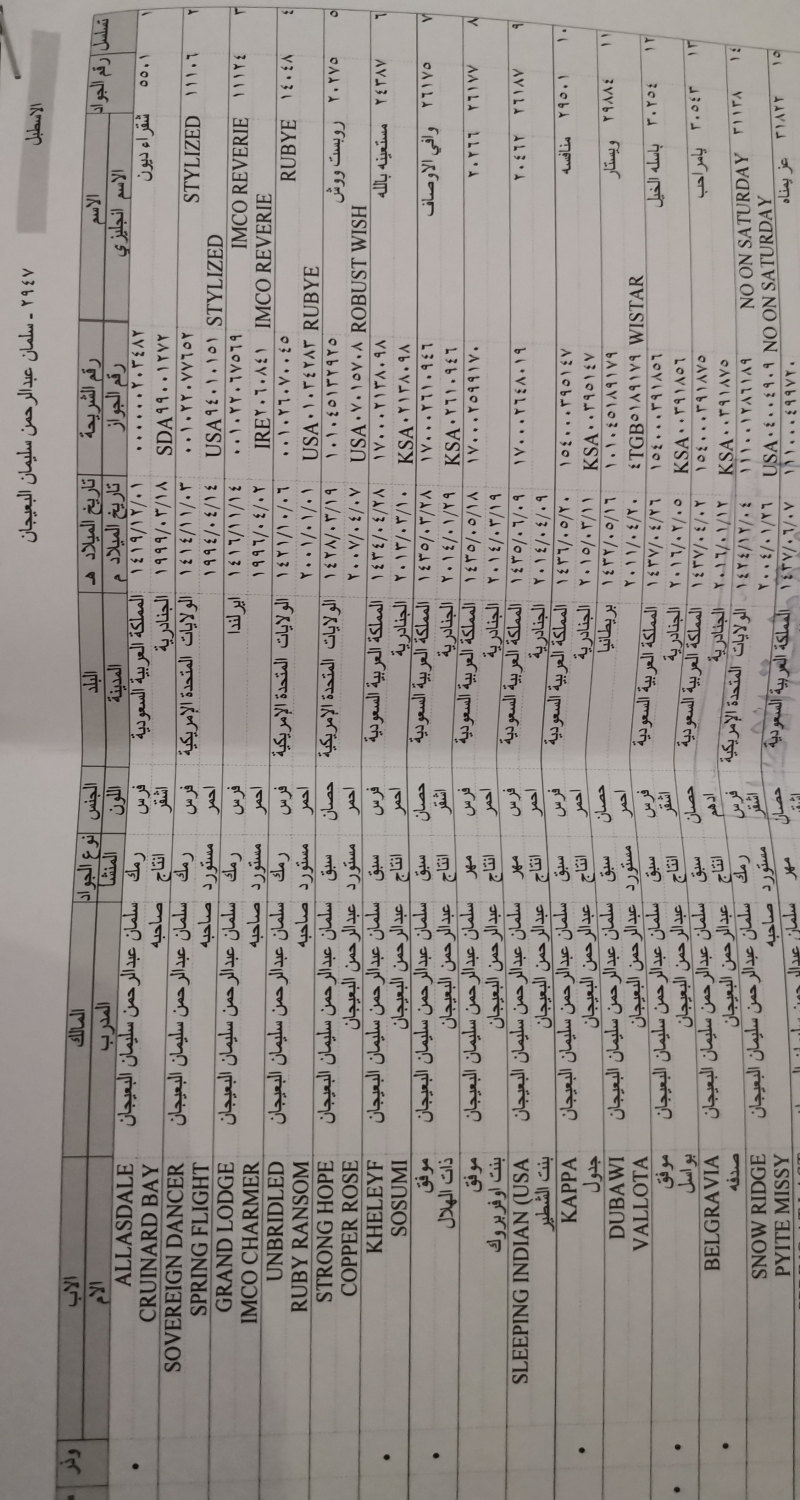 ٢٩٤٧ - سلمان عبدالرحمن سليمان البعيجان
الاسطبل
تسلسل رقم الجواد الاسم رقم الشريحة تاريخ الميلاد هـ البلد الجنس نوع الجواد المالك الاب
الاسم انجليزي رقم الجواز تاريخ الميلاد م المدينة اللون المنشا المدرب الام
١ ٥٥٠١ شقراء ديون ٠٠٠٠٠٠٢٠٣٤٨٢ ١٤١٩/١٢/٠١ المملكة العربية السعودية فرس رمك سلمان عبدالرحمن سليمان البعيجان ALLASDALE
SDA٩٩٠٠١٢٧٢ ١٩٩٩/٠٣/١٨ الجنادرية اشقر انتاج صاحبه CRUINARD BAY
٢ ١١١٠٦ STYLIZED ٠٠١٠٢٢٠٧٧٦٥٢ ١٤١٤/١١/٠٣ الولايات المتحدة الإمريكية فرس رمك سلمان عبدالرحمن سليمان البعيجان SOVEREIGN DANCER
STYLIZED USA٩٤٠١٠١٥١ ١٩٩٤/٠٤/١٤ احمر مستورد صاحبه SPRING FLIGHT
٣ ١١١٢٤ IMCO REVERIE ٠٠١٠٢٢٠٦٧٥٦٩ ١٤١٦/١١/١٤ ايرلندا فرس رمك سلمان عبدالرحمن سليمان البعيجان GRAND LODGE
IMCO REVERIE IRE٢٠٦٠٨٤١ ١٩٩٦/٠٤/٠٢ احمر مستورد صاحبه IMCO CHARMER
٤ ١٤٠٤٨ RUBYE ٠٠١٠٢٦٠٧٠٠٤٥ ١٤٢١/١٠/٠٦ الولايات المتحدة الإمريكية فرس رمك سلمان عبدالرحمن سليمان البعيجان UNBRIDLED
RUBYE USA٠١٠٣٤٢٨٣ ٢٠٠١/٠١/٠١ احمر مستورد صاحبه RUBY RANSOM
٥ ٢٠٢٧٥ روبست ووش ١٠١٠٤٥١٣٢٩٢٥ ١٤٢٨/٠٣/١٩ الولايات المتحدة الإمريكية حصان سبق سلمان عبدالرحمن سليمان البعيجان STRONG HOPE
ROBUST WISH USA٠٧٠١٥٧٠٨ ٢٠٠٧/٠٤/٠٧ احمر مستورد عبدالرحمن البعيجان COPPER ROSE
٦ ٢٤٣٨٧ مستعينه بالله ١٧٠٠٠٢١٣٨٠٩٨ ١٤٣٤/٠٤/٢٨ المملكة العربية السعودية فرس سبق سلمان عبدالرحمن سليمان البعيجان KHELEYF
KSA٠٠٢١٣٨٠٩٨ ٢٠١٣/٠٣/١٠ الجنادرية احمر انتاج عبدالرحمن البعيجان SOSUMI
٧ ٢٦١٧٥ وافي الاوصاف ١٧٠٠٠٢٦١٠٩٤٦ ١٤٣٥/٠٣/٢٨ المملكة العربية السعودية حصان سبق سلمان عبدالرحمن سليمان البعيجان موفق
KSA٠٠٢٦١٠٩٤٦ ٢٠١٤/٠١/٢٩ الجنادرية اشقر انتاج عبدالرحمن البعيجان ذات الهلال
٨ ٢٦١٧٧ ٢٠٢٦٦ ١٧٠٠٠٢٥٩٩١٧٠ ١٤٣٥/٠٥/١٨ المملكة العربية السعودية فرس مهر سلمان عبدالرحمن سليمان البعيجان موفق
٢٠١٤/٠٣/١٩ الجنادرية احمر انتاج عبدالرحمن البعيجان بنت اوفربروك
٩ ٢٦١٨٧ ٢٠٤٦٢ ١٧٠٠٠٢٦٤٨٠١٩ ١٤٣٥/٠٦/٠٩ المملكة العربية السعودية فرس مهر سلمان عبدالرحمن سليمان البعيجان SLEEPING INDIAN (USA
٢٠١٤/٠٤/٠٩ الجنادرية احمر انتاج عبدالرحمن البعيجان بنت الشطير
١٠ ٢٩٥٠١ منافسه ١٥٤٠٠٠٣٩٥١٤٧ ١٤٣٦/٠٥/٢٠ المملكة العربية السعودية فرس سبق سلمان عبدالرحمن سليمان البعيجان KAPPA
KSA٠٠٣٩٥١٤٧ ٢٠١٥/٠٣/١١ الجنادرية احمر انتاج عبدالرحمن البعيجان جدول
١١ ٢٩٨٨٤ ويستار ١٠١٠٤٥١٨٩١٧٩ ١٤٣٢/٠٥/١٦ بريطانيا حصان سبق سلمان عبدالرحمن سليمان البعيجان DUBAWI
WISTAR ٤TGB٥١٨٩١٧٩ ٢٠١١/٠٤/٢٠ احمر مستورد عبدالرحمن البعيجان VALLOTA
١٢ ٣٠٢٥٤ باسله الخيل ١٥٤٠٠٠٣٩١٨٥٦ ١٤٣٧/٠٤/٢٦ المملكة العربية السعودية فرس سبق سلمان عبدالرحمن سليمان البعيجان موفق
KSA٠٠٣٩١٨٥٦ ٢٠١٦/٠٢/٠٥ الجنادرية اشقر انتاج عبدالرحمن البعيجان بواسل
١٣ ٣٠٥٤٣ يامراحب ١٥٤٠٠٠٣٩١٨٧٥ ١٤٣٧/٠٤/٠٢ المملكة العربية السعودية حصان سبق سلمان عبدالرحمن سليمان البعيجان BELGRAVIA
KSA٠٠٣٩١٨٧٥ ٢٠١٦/٠١/١٢ الجنادرية ادهم انتاج عبدالرحمن البعيجان صدفه
١٤ ٣١١٣٨ NO ON SATURDAY ١١١٠٠١٢٨١١٨٩ ١٤٢٤/١٢/٠٤ الولايات المتحدة الإمريكية فرس رمك سلمان عبدالرحمن سليمان البعيجان SNOW RIDGE
NO ON SATURDAY USA٠٤٠٠٤٩٠٩ ٢٠٠٤/٠١/٢٦ اشقر مستورد صاحبه PYITE MISSY
١٥ ٣١٨٢٢ عز يمناه ١٤٣٧/٠٦/٠٧ المملكة العربية السعودية حصان مهر